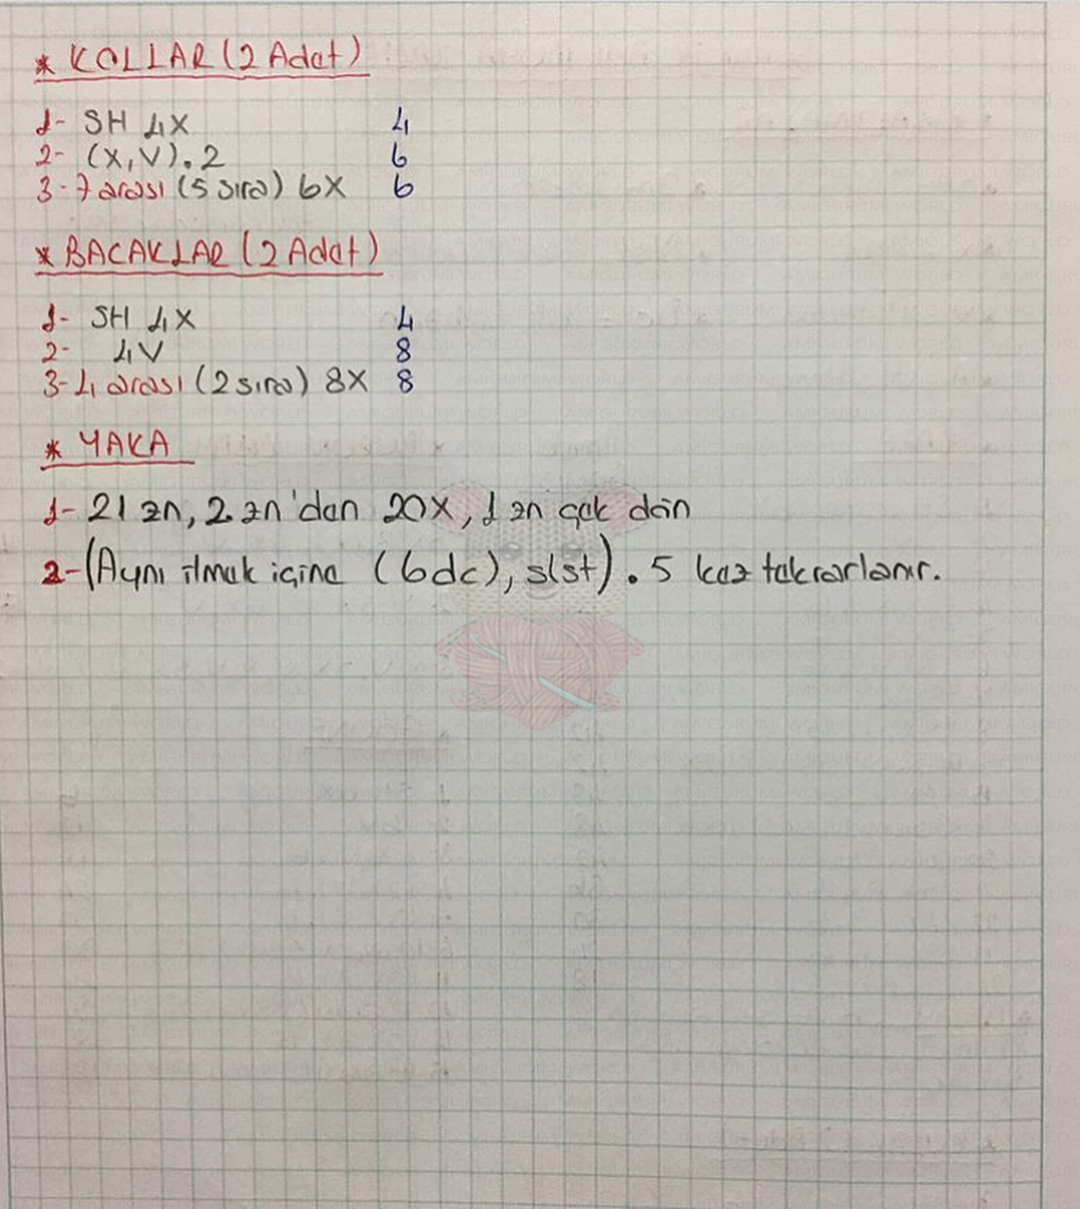 * KOLLAR (2 Adet)
1- SH 4X 4
2- (X,V).2 6
3-7 arası (5 sıra) 6X 6
* BACAKLAR (2 Adet)
1- SH 4X 4
2- 4V 8
3-4 arası (2 sıra) 8X 8
* YAKA
1- 21 zn, 2. zn'dan 20X, 1 zn çek dön
2- (Aynı ilmek içine (6dc), slst). 5 kez tekrarlanır.